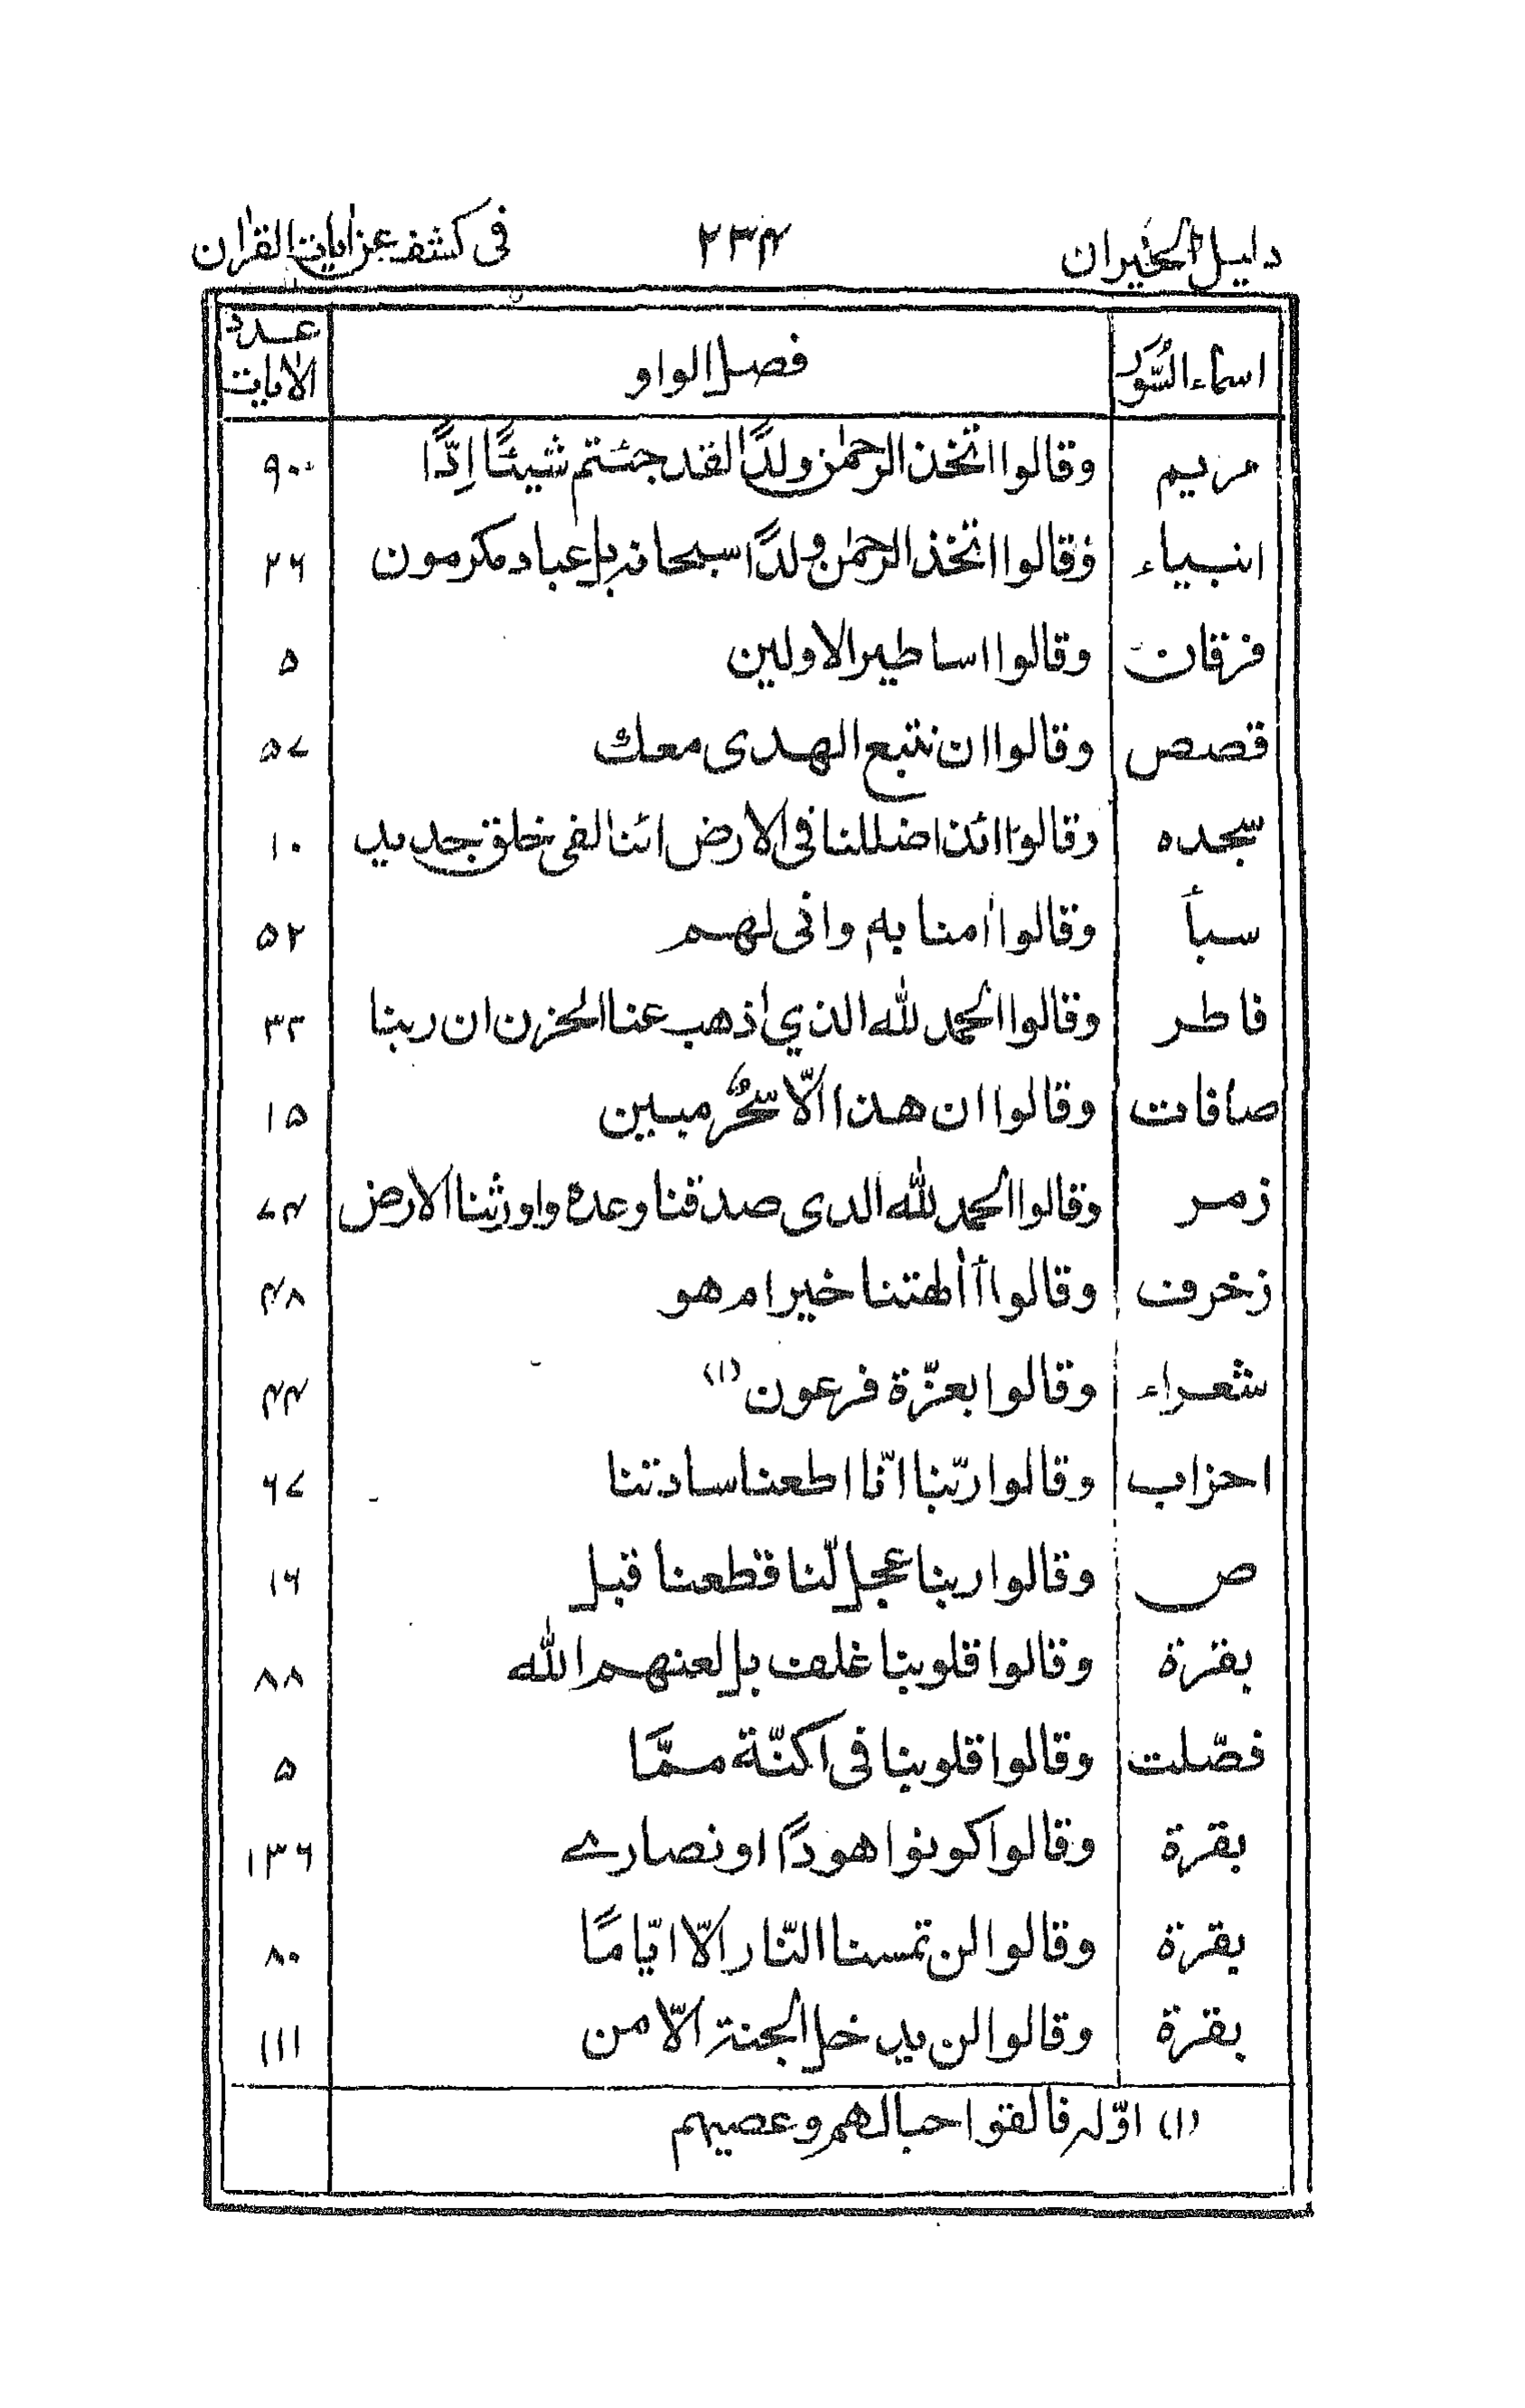 دليل الحيران ٢٣٤ فى كشف عن ايات القران
اسماء السُّوَر فصل الواو عدد الايات
مريم وقالوا اتخذ الرحمٰن ولدًا لقد جئتم شيئًا اِدًّا ٩٠
انبياء وقالوا اتخذ الرحمٰن ولدًا سبحانه بل عباد مكرمون ٢٦
فرقان وقالوا اساطير الاولين ٥
قصص وقالوا ان نتبع الهدى معك ٥٧
سجده وقالوا ائذا ضللنا فى الارض ائنا لفى خلق جديد ١٠
سبأ وقالوا اٰمنا به وانى لهم ٥٢
فاطر وقالوا الحمد لله الذي اذهب عنا الحزن ان ربنا ٣٢
صافات وقالوا ان هذا الّا سحرٌ مبين ١٥
زمر وقالوا الحمد لله الدى صدقنا وعده واورثنا الارض ٧٤
زخرف وقالوا أاٰلهتنا خير ام هو ٤٨
شعراء وقالوا بعزّة فرعون (١) ٤٤
احزاب وقالوا ربّنا انّا اطعنا سادتنا ٦٧
ص وقالوا ربنا عجل لّنا قطعنا قبل ١٦
بقرة وقالوا قلوبنا غلف بل لعنهم الله ٨٨
فصّلت وقالوا قلوبنا فى اكنّة ممَّا ٥
بقرة وقالوا كونوا هودًا او نصارے ١٣٦
بقرة وقالوا لن تمسنا النّار الّا ايّامًا ٨٠
بقرة وقالوا لن يدخل الجنة الّا من ١١١
(١) اوّله فالقوا حبالهم وعصيهم